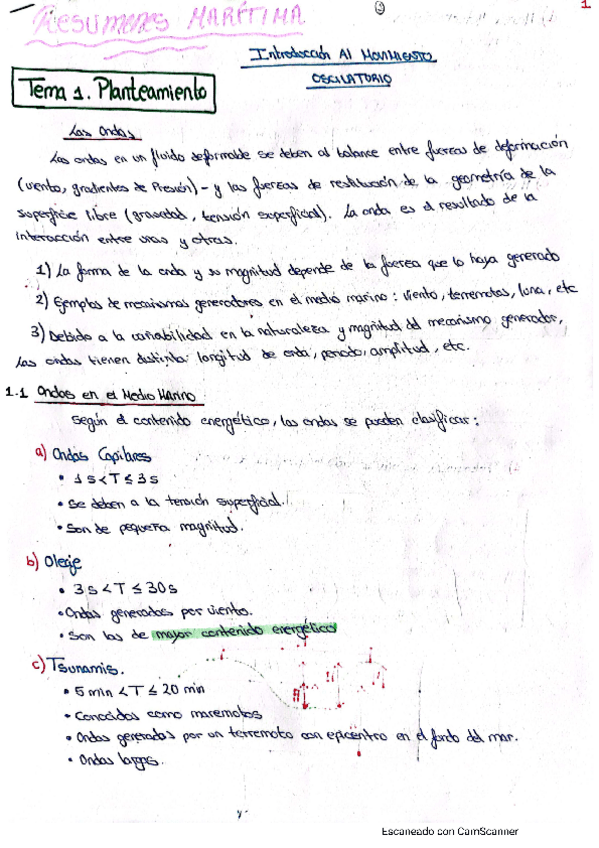 1
RESUMENES MARÍTIMA
Introducción Al MOVIMIENTO
OSCILATORIO
Tema 1. Planteamiento
Las Ondas
Las ondas en un fluido deformable se deben al balance entre fuerzas de deformación
(viento, gradientes de Presión) - y las fuerzas de restitución de la geometría de la
superficie libre (gravedad, tensión superficial). La onda es el resultado de la
interacción entre unas y otras.
1) La forma de la onda y su magnitud depende de la fuerza que lo haya generado
2) Ejemplos de mecanismos generadores en el medio marino: viento, terremotos, luna, etc
3) Debido a la variabilidad en la naturaleza y magnitud del mecanismo generador,
las ondas tienen distinta: longitud de onda, periodo, amplitud, etc.
1.1 Ondas en el Medio Marino
Según el contenido energético, las ondas se pueden clasificar:
a) Ondas Capilares
• 1s < T ≤ 3s
• Se deben a la tensión superficial.
• Son de pequeña magnitud.
b) Oleaje
• 3s < T ≤ 30s
• Ondas generadas por viento.
• Son las de mayor contenido energético
c) Tsunamis.
• 5 min < T ≤ 20 min
• Conocidos como maremotos
• Ondas generadas por un terremoto con epicentro en el fondo del mar.
• Ondas largas.
Escaneado con CamScanner